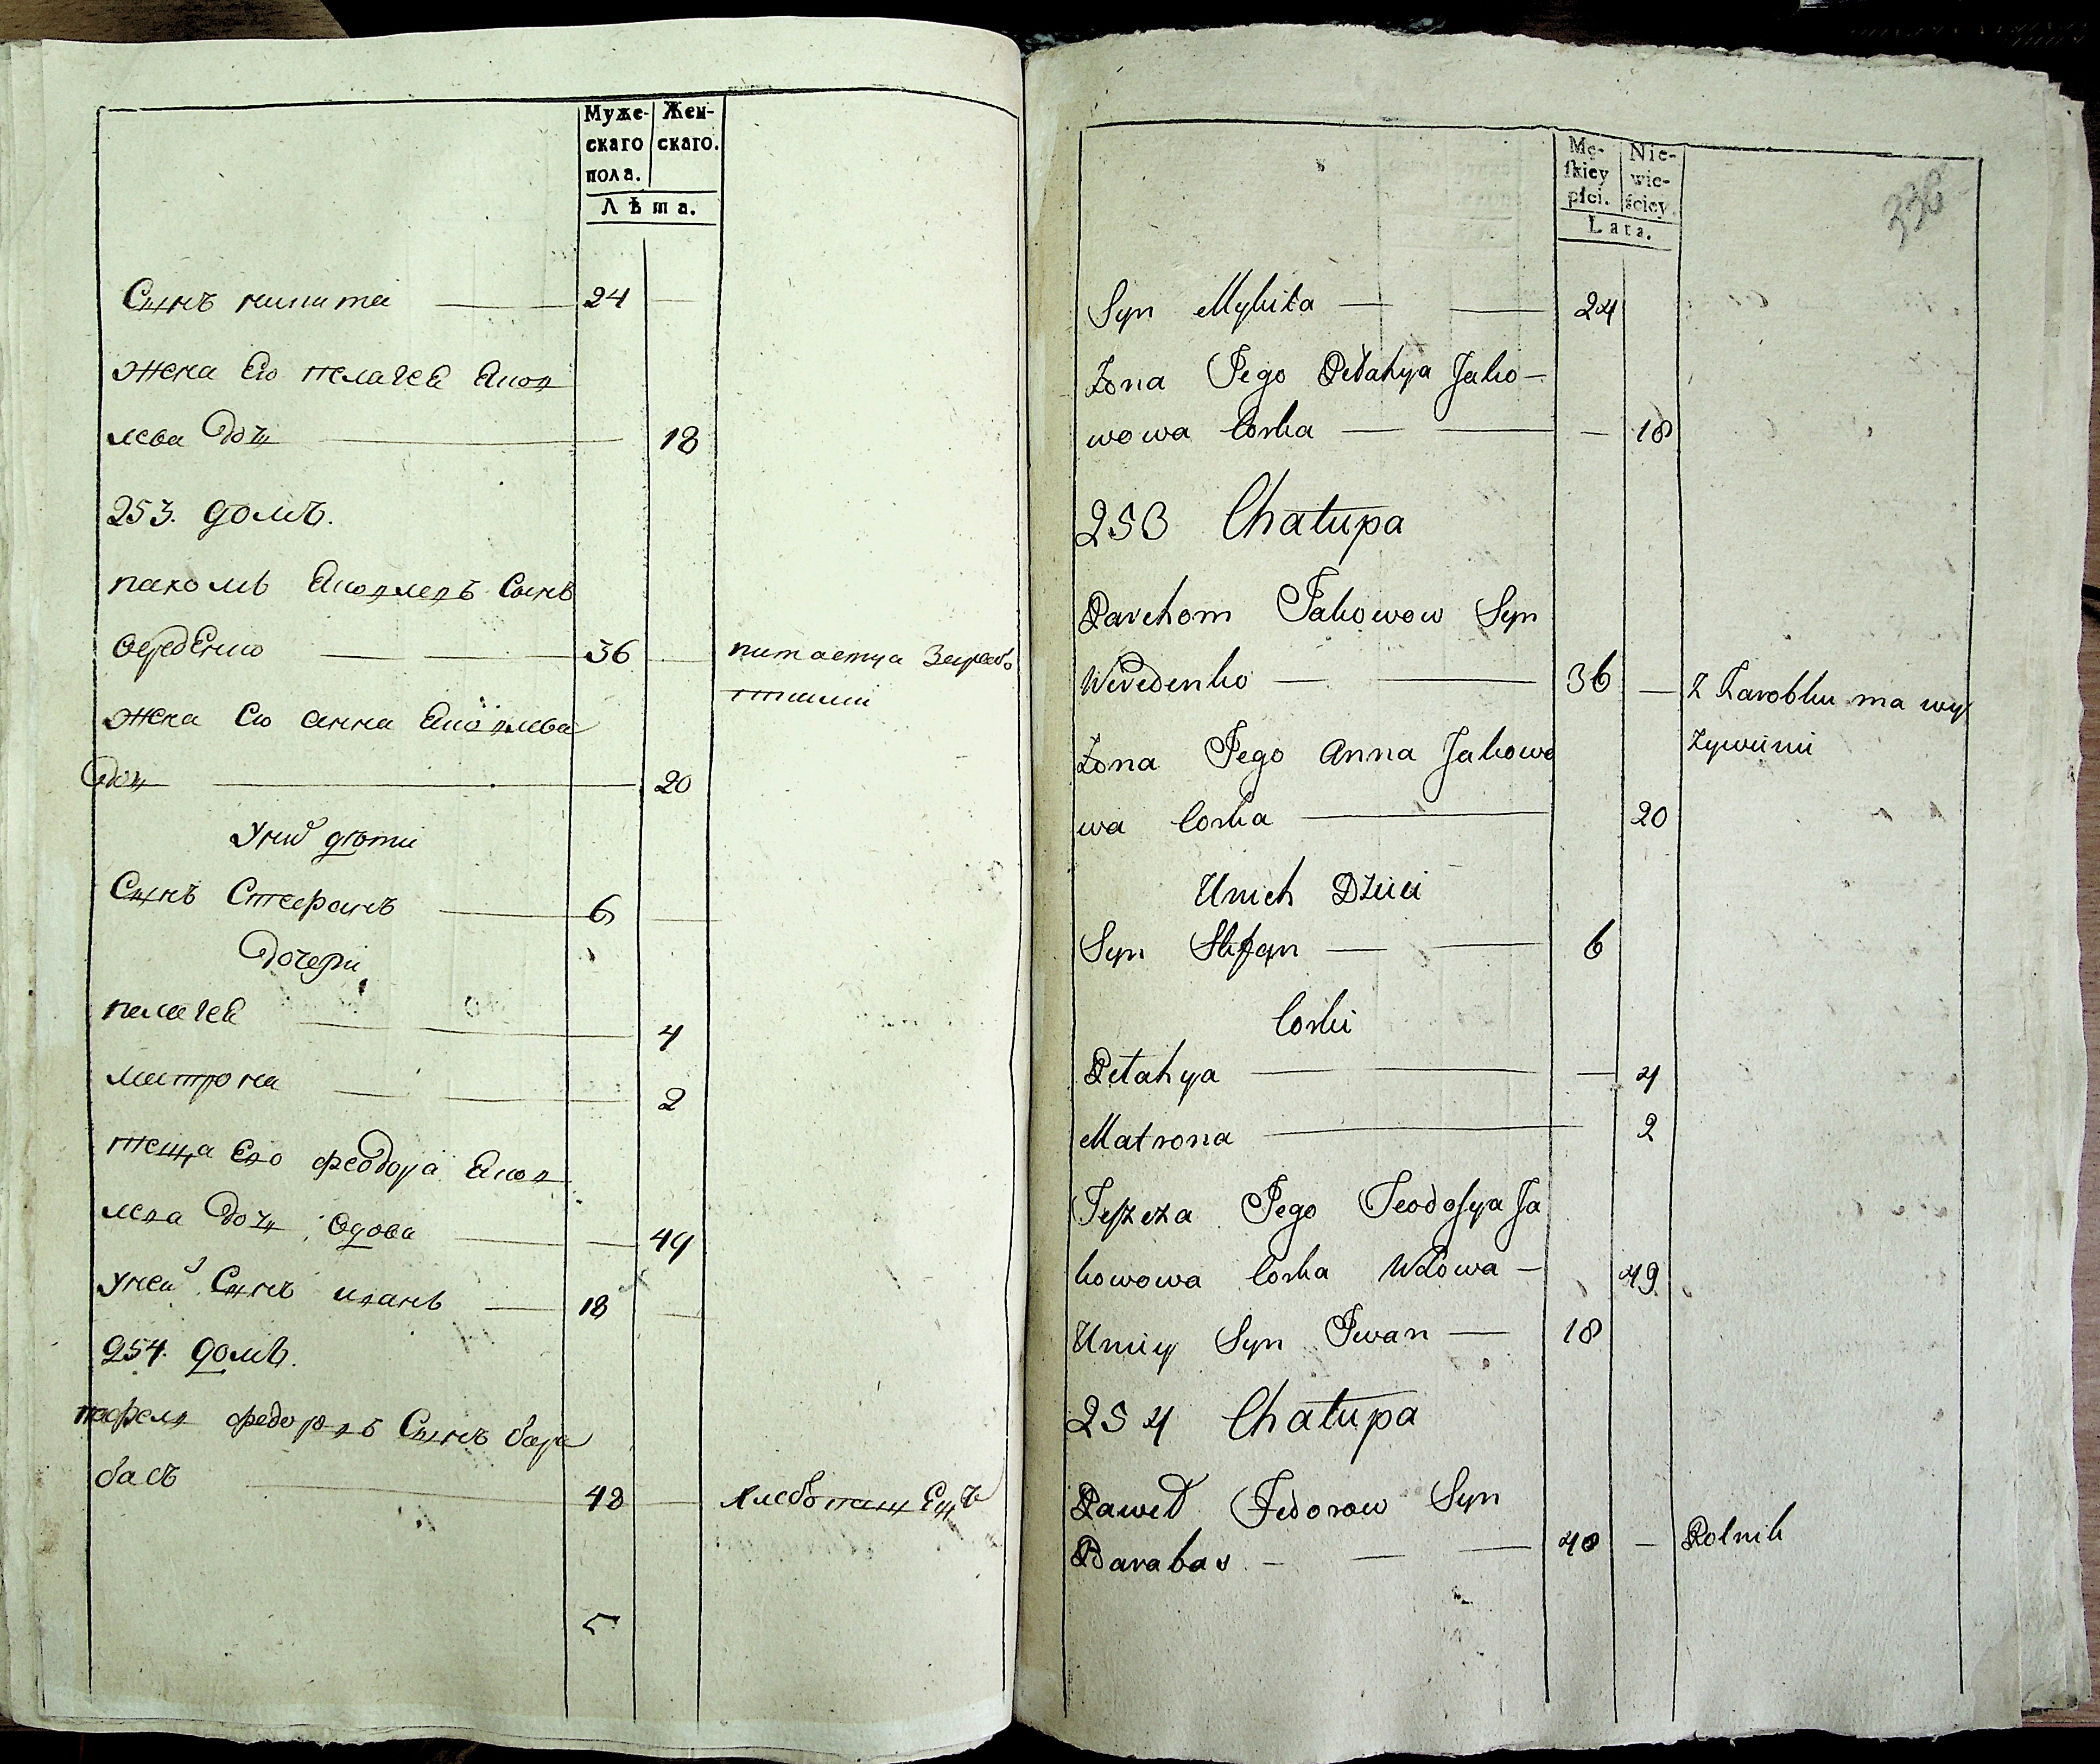 Муже-
скаго
пола.
Жен-
скаго.
Лѣта.
Сынъ никита 24
жена Его пелагеѣ Яков
лева дочь 18
253. домъ.
пахомъ Яковлевъ Сынъ
середенко 36 питаетца Зарабо
тками
жена Его анна Яковлева
дочь 20
Унихъ дѣти
Сынъ Стефанъ 6
дочери
пелагеѣ 4
матрона 2
теща Его феодора Яков
лева дочь вдова 49
Уней Сынъ иванъ 18
254. домъ.
федоровъ Сынъ бара
басъ 48
5
336
Mę-
skiey
płci.
Nie-
wie-
ściey.
Lata.
Syn Mykita 24
Żona Jego Pełahya Jako-
wowa Corka 18
253 Chałupa
Parchom Jakowow Syn
Weredenko 36 Z Zarobku ma wy
Żona Jego Anna Jakowo żywieni
wa Corka 20
Unich Dzieci
Syn Stefan 6
Corki
Pełahya 4
Matrona 2
Teszcza Jego Teodosya Ja
kowowa Corka Wdowa 49
Uniey Syn Iwan 18
254 Chałupa
Paweł Fedorow Syn
Barabas 48 Rolnik